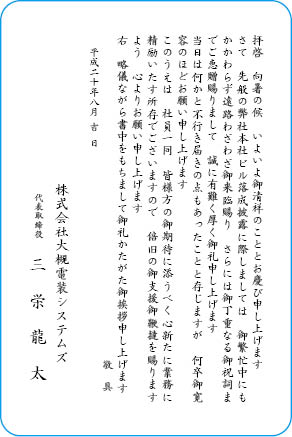 拝啓　向暑の候　いよいよ御清祥のこととお慶び申し上げます
さて　先般の弊社本社ビル落成披露に際しましては　御繁忙中にも
かかわらず遠路わざわざ御来臨賜り　さらには御丁重なる御祝詞ま
でご恵贈賜りまして　誠に有難く厚く御礼申し上げます
当日は何かと不行き届きの点もあったことと存じますが　何卒御寛
容のほどお願い申し上げます
このうえは　社員一同　皆様方の御期待に添うべく心新たに業務に
精励いたす所存でございますので　倍旧の御支援御鞭撻を賜ります
よう　心よりお願い申し上げます
右　略儀ながら書中をもちまして御礼かたがた御挨拶申し上げます
敬具
平成二十年八月　吉　日
株式会社大槻電装システムズ
代表取締役　三　栄　龍　太